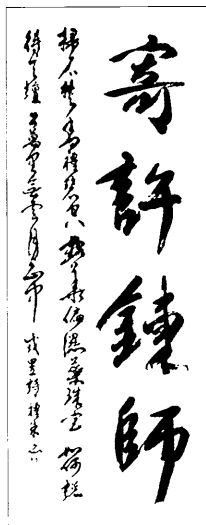 寄許鍊師
掃石焚香禮碧空露華偏濕蕊珠宮如何說
得天壇上萬里無雲月正中戎昱詩